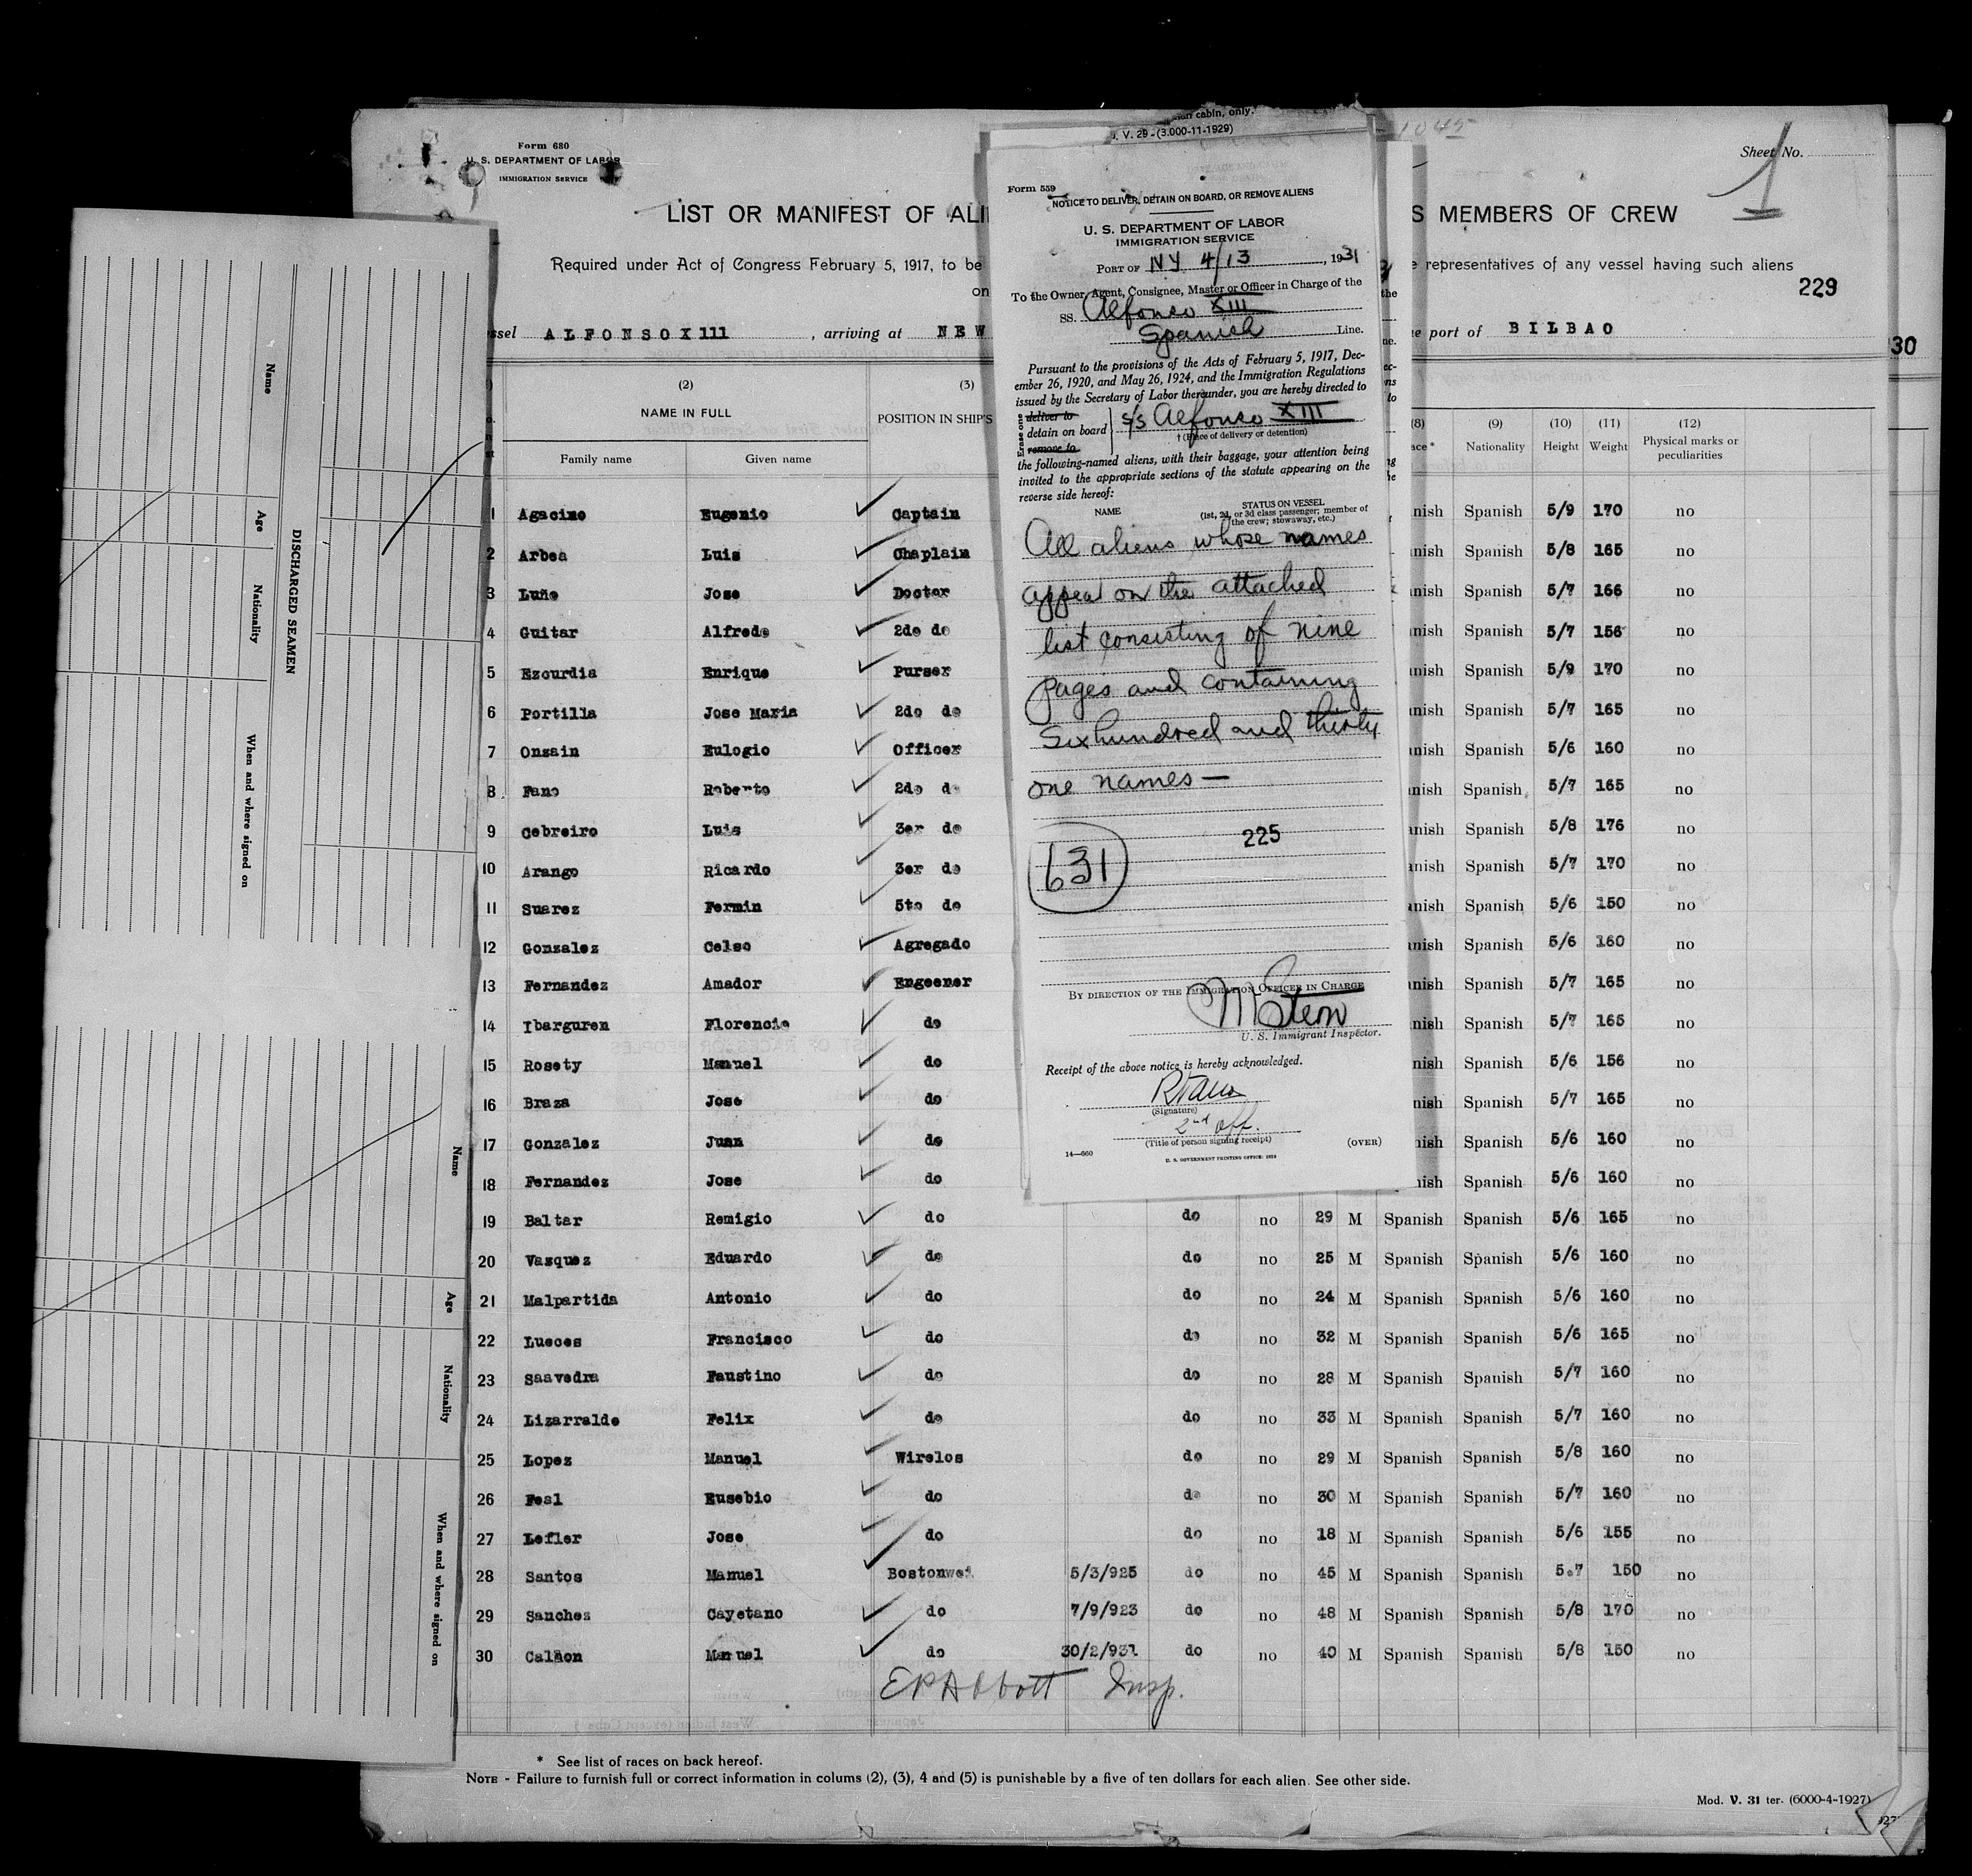 Form 680
U. S. DEPARTMENT OF LABOR
IMMIGRATION SERVICE
1045
Sheet No. 1
LIST OR MANIFEST OF ALI
S MEMBERS OF CREW
Required under Act of Congress February 5, 1917, to be
e representatives of any vessel having such aliens
on
229
ssel ALFONSO X111 , arriving at NEW
e port of BILBAO
30
(2) (3) (8) (9) (10) (11) (12)
NAME IN FULL POSITION IN SHIP'S ace* Nationality Height Weight Physical marks or peculiarities
Family name Given name
1 Agacino Eugenio Captain nish Spanish 5/9 170 no
2 Arbea Luis Chaplain nish Spanish 5/8 165 no
3 Luño Jose Doctor nish Spanish 5/7 166 no
4 Guitar Alfredo 2do do nish Spanish 5/7 156 no
5 Ezcurdia Enrique Purser nish Spanish 5/9 170 no
6 Portilla Jose Maria 2do do nish Spanish 5/7 165 no
7 Onzain Eulogio Officer nish Spanish 5/6 160 no
8 Fano Roberto 2do do nish Spanish 5/7 165 no
9 Cebreiro Luis 3er do nish Spanish 5/8 176 no
10 Arango Ricardo 3er do nish Spanish 5/7 170 no
11 Suarez Fermin 5to do nish Spanish 5/6 150 no
12 Gonzalez Celso Agregado nish Spanish 5/6 160 no
13 Fernandez Amador Engeener nish Spanish 5/7 165 no
14 Ibarguren Florencio do nish Spanish 5/7 165 no
15 Rosety Manuel do nish Spanish 5/6 156 no
16 Braza Jose do nish Spanish 5/7 165 no
17 Gonzalez Juan do nish Spanish 5/6 160 no
18 Fernandez Jose do nish Spanish 5/6 160 no
19 Baltar Remigio do do no 29 M Spanish Spanish 5/6 165 no
20 Vazquez Eduardo do do no 25 M Spanish Spanish 5/6 160 no
21 Malpartida Antonio do do no 24 M Spanish Spanish 5/6 160 no
22 Lueces Francisco do do no 32 M Spanish Spanish 5/6 165 no
23 Saavedra Faustino do do no 28 M Spanish Spanish 5/7 160 no
24 Lizarralde Felix do do no 33 M Spanish Spanish 5/7 160 no
25 Lopez Manuel Wirelos do no 29 M Spanish Spanish 5/8 160 no
26 Feal Eusebio do do no 30 M Spanish Spanish 5/7 160 no
27 Lefler Jose do do no 18 M Spanish Spanish 5/6 155 no
28 Santos Manuel Bostonwei 5/3/925 do no 45 M Spanish Spanish 5.7 150 no
29 Sanchez Cayetano do 7/9/923 do no 48 M Spanish Spanish 5/8 170 no
30 Calñon Manuel do 30/2/931 do no 40 M Spanish Spanish 5/8 150 no
EPAbbott Insp.
* See list of races on back hereof.
NOTE - Failure to furnish full or correct information in colums (2), (3), 4 and (5) is punishable by a five of ten dollars for each alien. See other side.
Mod. V. 31 ter. (6000-4-1927)
cabin, only.
V. 29 - (3.000-11-1929)
Form 559
NOTICE TO DELIVER, DETAIN ON BOARD, OR REMOVE ALIENS
U. S. DEPARTMENT OF LABOR
IMMIGRATION SERVICE
PORT OF NY 4/13, 1931
To the Owner, Agent, Consignee, Master or Officer in Charge of the
SS. Alfonso XIII
Spanish Line.
Pursuant to the provisions of the Acts of February 5, 1917, Dec-
ember 26, 1920, and May 26, 1924, and the Immigration Regulations
issued by the Secretary of Labor thereunder, you are hereby directed to
Erase one
deliver to
detain on board
remove to
s/s Alfonso XIII
† (Place of delivery or detention)
the following-named aliens, with their baggage, your attention being
invited to the appropriate sections of the statute appearing on the
reverse side hereof:
NAME
STATUS ON VESSEL
(1st, 2d, or 3d class passenger; member of
the crew; stowaway, etc.)
All aliens whose names
appear on the attached
list consisting of nine
pages and containing
Six hundred and thirty
one names —
225
631
BY DIRECTION OF THE IMMIGRATION OFFICER IN CHARGE
M Stern
U. S. Immigrant Inspector.
Receipt of the above notice is hereby acknowledged.
RFano
(Signature)
2nd Off.
(Title of person signing receipt)
(OVER)
14—660
U. S. GOVERNMENT PRINTING OFFICE: 1929
DISCHARGED SEAMEN
Name
Age
Nationality
When and where signed on
Name
Age
Nationality
When and where signed on